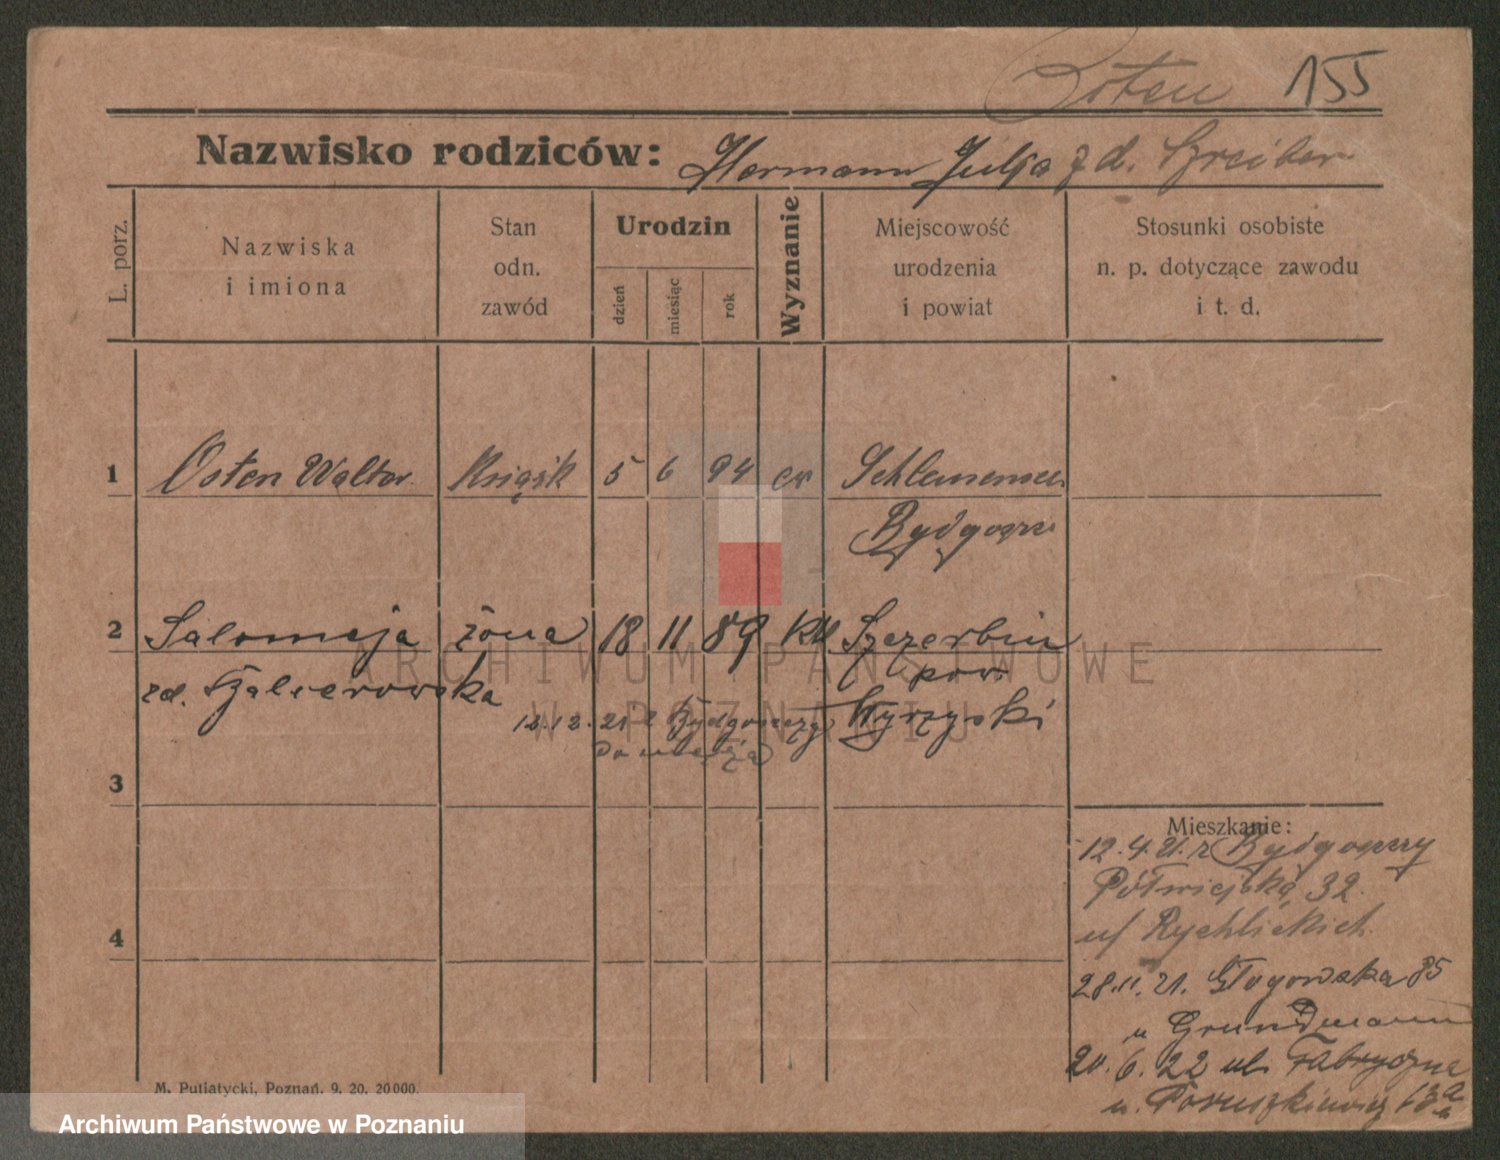 Osten 155
Nazwisko rodziców: Hermann Julja z d. Szreiber
L. porz.
Nazwiska
i imiona
Stan
odn.
zawód
Urodzin
dzień
miesiąc
rok
Wyznanie
Miejscowość
urodzenia
i powiat
Stosunki osobiste
n. p. dotyczące zawodu
i t. d.
1 Osten Walter Książk 5 6 94 ew
Bydgoszcz
2 Salomeja żona 18 11 89 Szczerbin
pow.
zd.
Wyrzyski
12.12.21 z Bydgoszczy
do męża
3
Mieszkanie:
12.4.21. z Bydgoszczy
Półwiejska 32.
u/ Rychlickich
4
28.11.21. Głogowska 85
u Grundmann
20.6.22 ul. Fabryczna
u.
M. Putiatycki, Poznań. 9. 20. 20000.
ARCHIWUM PAŃSTWOWE
W POZNANIU
Archiwum Państwowe w Poznaniu